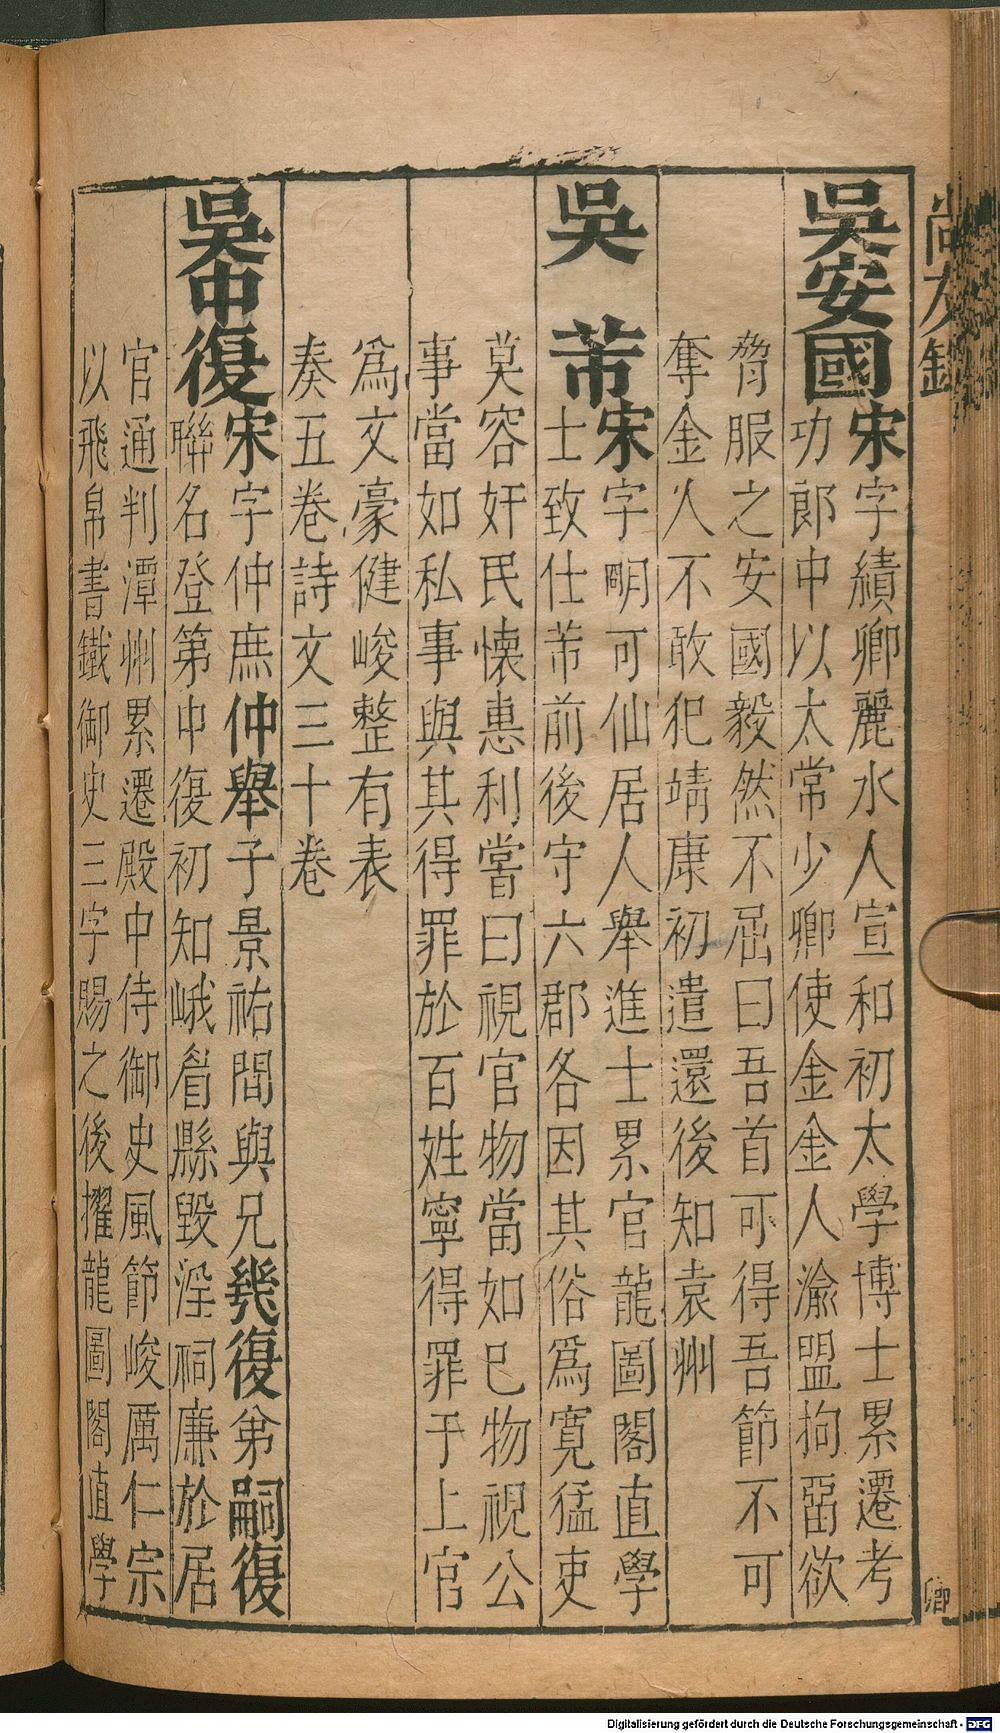 尚友錄
吳安國宋字績卿麗水人宣和初太學博士累遷考
功郎中以太常少卿使金金人渝盟拘畱欲
脅服之安國毅然不屈曰吾首可得吾節不可
奪金人不敢犯靖康初遣還後知袁州
吳芾宋字明可仙居人舉進士累官龍圖閣直學
士致仕芾前後守六郡各因其俗爲寬猛吏
莫容奸民懷惠利嘗曰視官物當如己物視公
事當如私事與其得罪於百姓寧得罪于上官
爲文豪健峻整有表
奏五卷詩文三十卷
吳中復宋字仲庶仲舉子景祐間與兄幾復弟嗣復
聯名登第中復初知峨眉縣毀淫祠廉於居
官通判潭州累遷殿中侍御史風節峻厲仁宗
以飛帛書鐵御史三字賜之後擢龍圖閣直學
卿
Digitalisierung gefördert durch die Deutsche Forschungsgemeinschaft - DFG